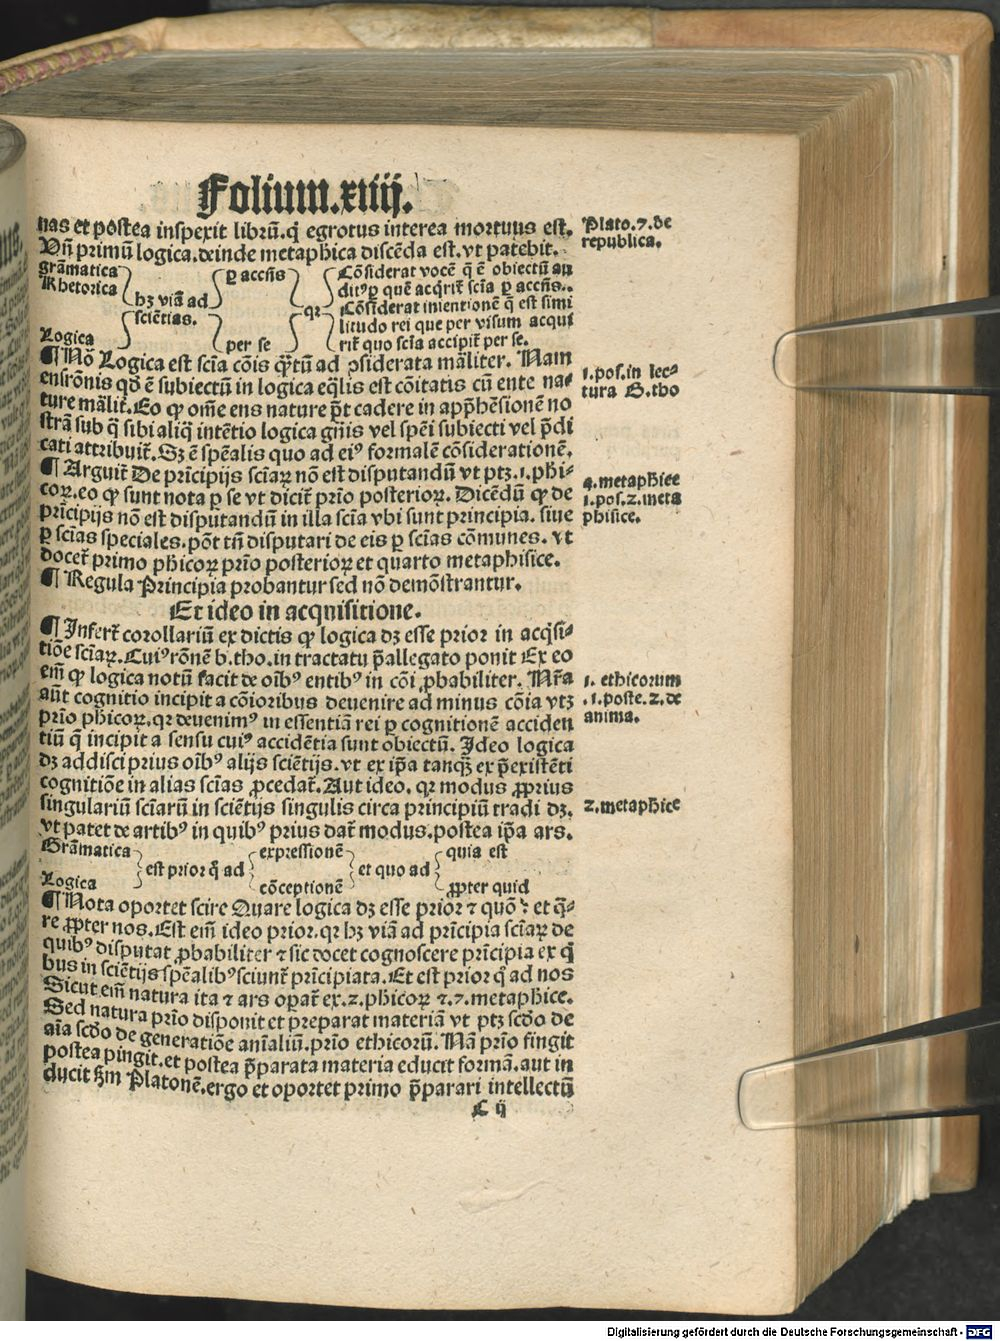 Folium.xiiij.
nas et postea inspexit librū. q̄ egrotus interea mortuus est.
Vn̄ primū logica. deinde metaphica discēda est. vt patebit.
Plato. 7. de
republica.
grāmatica
Rhetorica
Logica
hꝫ viā ad
sciētias.
ꝑ accn̄s
per se
qꝛ
Cōsiderat vocē q̄ ē obiectū au
ditꝰ ꝑ quē acq̄rit̄ scīa ꝑ accn̄s.
Cōsiderat intentionē q̄ est simi
litudo rei que per visum acqui
rit̄ quo scīa accipit̄ per se.
¶ Nō Logica est scīa cōis q̄ꝫtū ad ꝯsiderata māliter. Nam
ensrōnis qd̄ ē subiectū in logica eq̄lis est cōitatis cū ente na⸗
ture mālit̄. Eo ꝙ om̄e ens nature pōt cadere in app̄hēsionē no
strā sub q̄ sibi aliq̄ intētio logica gn̄is vel spēi subiecti vel p̄di
cati attribuit̄. Sꝫ ē spēalis quo ad eiꝰ formalē cōsiderationē.
1. pos. in lec⸗
tura S. tho
¶ Arguit̄ De prīcipijs scīaꝝ nō est disputandū vt ptꝫ. 1. phi⸗
coꝝ. eo ꝙ sunt nota ꝑ se vt dicit̄ prīo posterioꝝ. Dicēdū ꝙ de
prīcipijs nō est disputandū in illa scīa vbi sunt principia. siue
ꝑ scīas speciales. pōt tn̄ disputari de eis ꝑ scīas cōmunes. vt
docet̄ primo phicoꝝ prīo posterioꝝ et quarto metaphisice.
4. metaphice
1. pos. 2. meta
phisice.
¶ Regula Principia probantur sed nō demōstrantur.
Et ideo in acquisitione.
¶ Infert̄ corollariū ex dictis ꝙ logica dꝫ esse prior in acq̄si⸗
tiōe scīaꝝ. Cuiꝰ rōnē b. tho. in tractatu p̄allegato ponit Ex eo
em̄ ꝙ logica notū facit de oībꝰ entibꝰ in cōi ꝓbabiliter. Nr̄a
aūt cognitio incipit a cōioribus deuenire ad minus cōia vtꝫ
prīo phicoꝝ. qꝛ deuenimꝰ in essentiā rei ꝑ cognitionē acciden
tiū q̄ incipit a sensu cuiꝰ accidētia sunt obiectū. Ideo logica
dꝫ addisci prius oībꝰ alijs sciētijs. vt ex ip̄a tanqꝫ̄ ex p̄existēti
cognitiōe in alias scīas ꝓcedat̄. Aut ideo. qꝛ modus ꝓprius
singulariū scīarū in sciētijs singulis circa principiū tradi dꝫ.
vt patet de artibꝰ in quibꝰ prius dat̄ modus. postea ip̄a ars.
1. ethicorum
. 1. poste. 2. de
anima.
2. metaphice
Grāmatica
Logica
est prior q̄ ad
expressionē
cōceptionē
et quo ad
quia est
ꝓpter quid
¶ Nota oportet scire Quare logica dꝫ esse prior ⁊ quō : et q̄⸗
re ꝓpter nos. Est em̄ ideo prior. qꝛ hꝫ viā ad prīcipia scīaꝝ de
quibꝰ disputat ꝓbabiliter ⁊ sic docet cognoscere prīcipia ex q̄
bus in sciētijs spēalibꝰ sciunt̄ prīcipiata. Et est prior q̄ ad nos
Sicut em̄ natura ita ⁊ ars oꝑat̄ ex. 2. phicoꝝ ⁊. 7. metaphice.
Sed natura prīo disponit et preparat materiā vt ptꝫ scd̄o de
aīa scd̄o de generatiōe anīaliū. prīo ethicorū. Nā prīo fingit
postea pingit. et postea p̄parata materia educit formā. aut in
ducit ẜm Platonē. ergo et oportet primo p̄parari intellectū
C ij
Digitalisierung gefördert durch die Deutsche Forschungsgemeinschaft - DFG